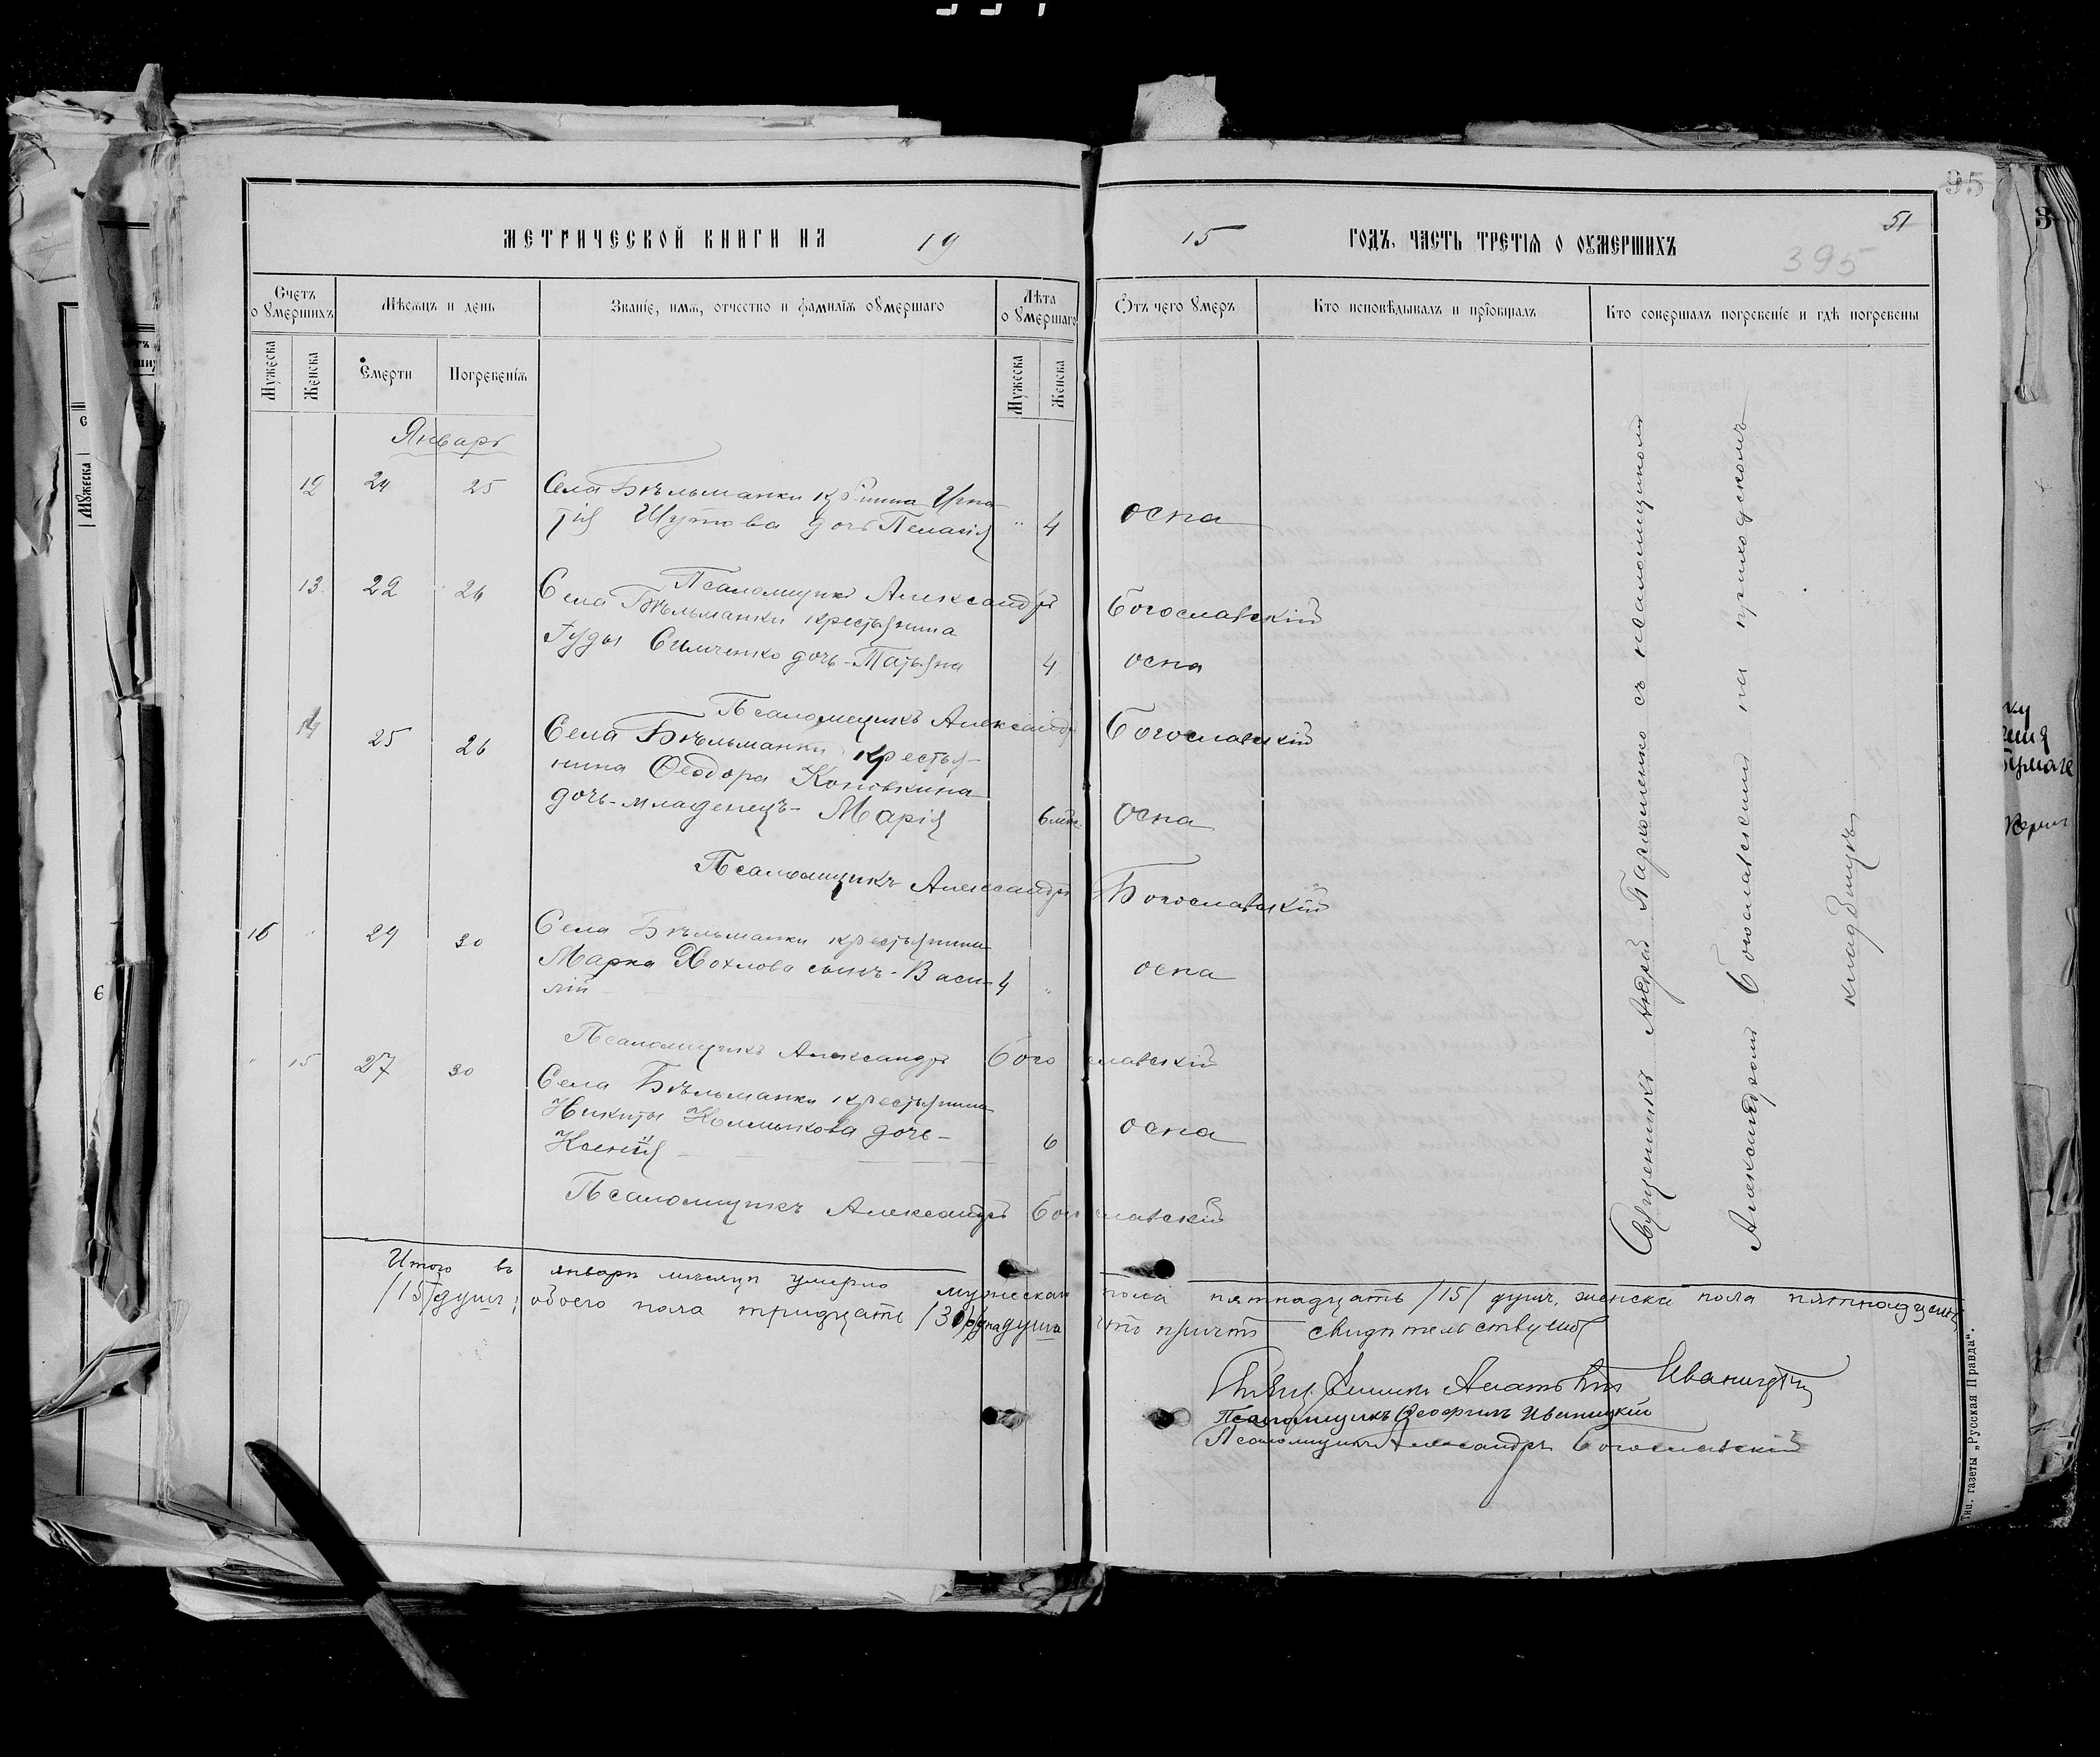 95
51
395
МЕТРИЧЕСКОЙ КНИГИ НА 19
15 ГОДЪ, ЧАСТЬ ТРЕТІЯ О ОУМЕРШИХЪ
Счетъ о умершихъ
Мѣсяцъ и день
Званіе, имя, отчество и фамилія оумершаго
Лѣта о умершаго
Отъ чего умеръ
Кто исповѣдывалъ и пріобщалъ
Кто совершалъ погребеніе и гдѣ погребены
Мужеска
Женска
Смерти
Погребенія
Мужеска
Женска
Январь
12 24 25 Села Бѣльманки кр-нина Игна-
тія Шутова дочь Пелагія " 4 оспа
Псаломщикъ Александръ Богославскій
13 22 26 Села Бѣльманки крестьянина
Іуды Симченко дочь-Татьяна 4 оспа
Псаломщикъ Александръ Богославскій
14 25 26 Села Бѣльманки крестья-
нина Ѳеодора Коновкина
дочь-младенецъ-Марія 6 мѣс. Оспа
Псаломщикъ Александръ Богославскій
16 " 29 30 Села Бѣльманки крестьянина
Марка Хохлова сынъ-Васи- 4 " оспа
лій
Псаломщикъ Александръ Богославскій
" 15 27 30 Села Бѣльманки крестьянина
Никиты Колмыкова дочь-
Ксенія 6 оспа
Псаломщикъ Александръ Богославскій
Священникъ Андрей Пархоменко съ псаломщикомъ
Александромъ Богославскимъ на приходскомъ
кладбищѣ
Итого въ январѣ мѣсяцѣ умерло мужеска пола пятнадцать /15/ душъ, женска пола пятнадцать
/15/ душъ; обоего пола тридцать душа что причтъ свидѣтельствуетъ
Иваницкій
Псаломщикъ Ѳеофилъ Иваницкій
Псаломщикъ Александръ Богославскій
Тип. газеты „Русская Правда“.